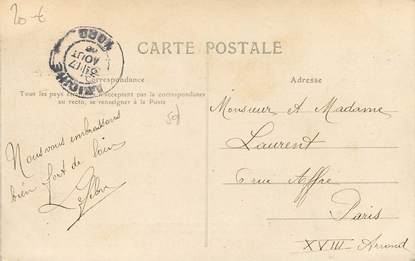 20 €
CARTE POSTALE
NORD
AOUT
Correspondance
Adresse
Tous les pays étrangers n'acceptent pas la correspondance
au recto, se renseigner à la Poste
Monsieur & Madame
Laurent
6 rue Affre
Paris
XVIII Arrond
Nous vous embrassons
bien fort de loin